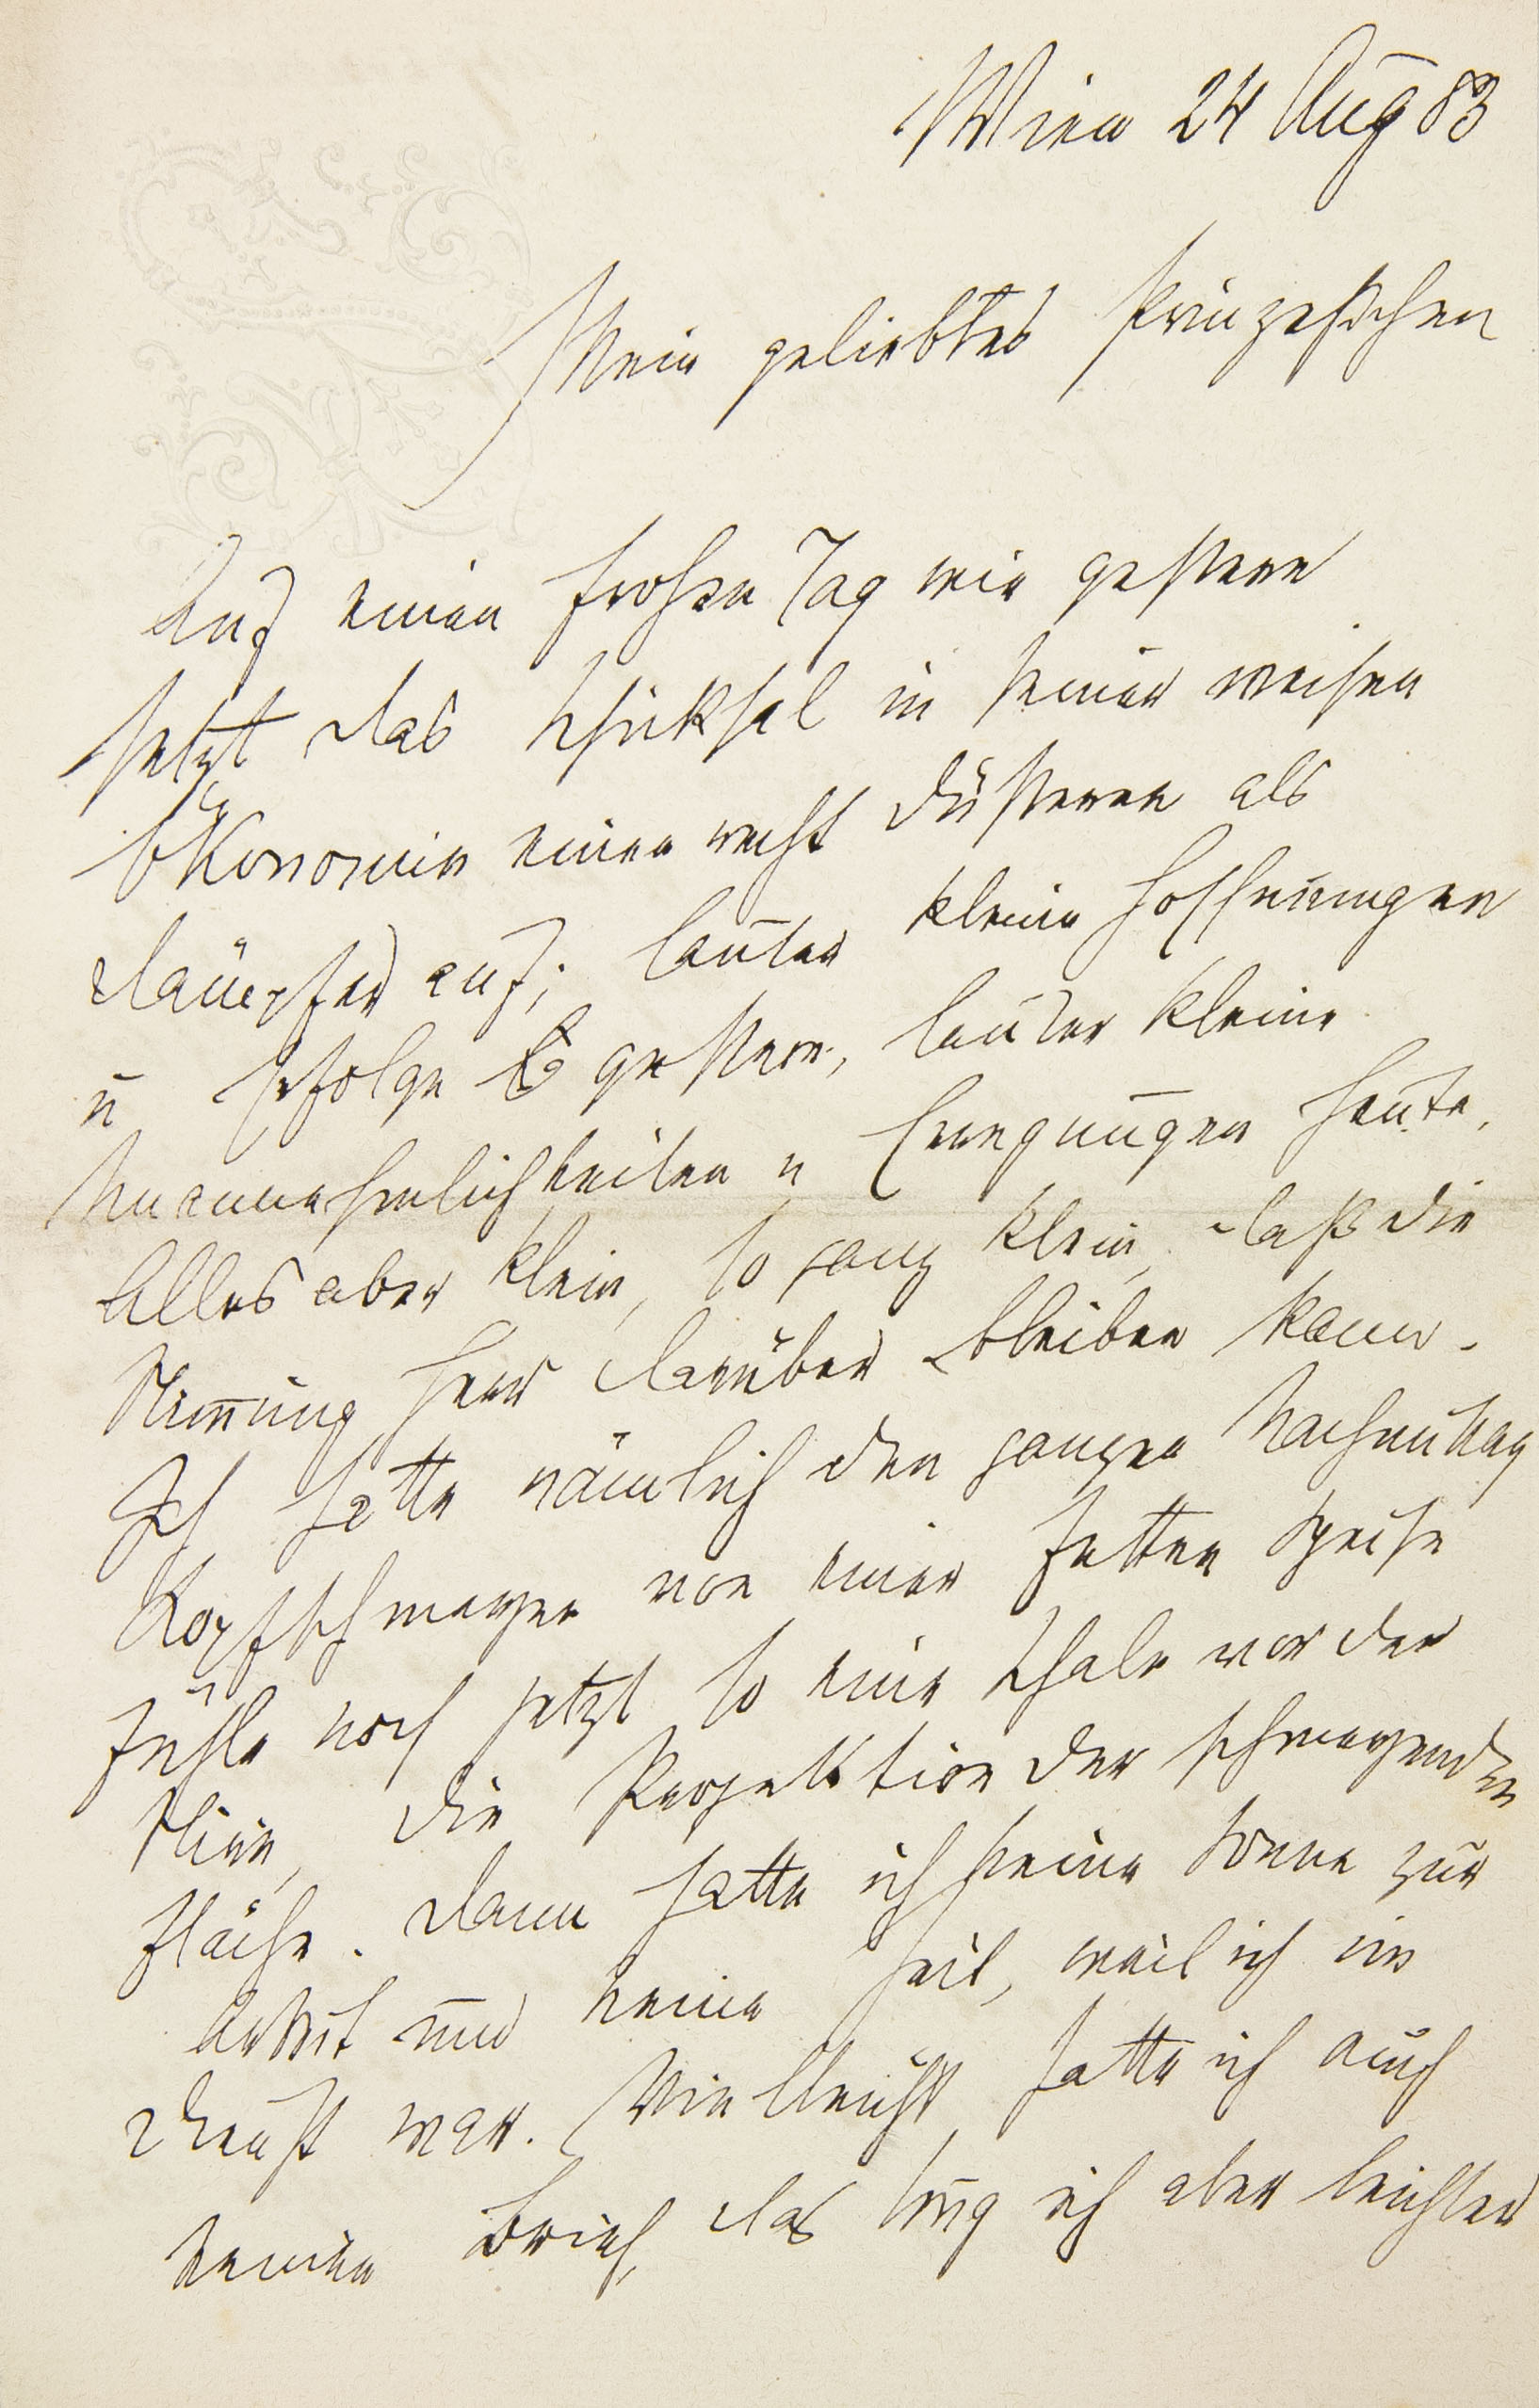 Wien 24 Aug 83
Mein geliebtes Prinzeßchen
Auf einen frohen Tag wie gestern
setzt das Schicksal in seiner weisen
Ökonomie einen recht düsteren als
Dämpfer auf; lauter kleine Hoffnungen
u Erfolge gestern, lauter kleine
Unannehmlichkeiten u Erregungen heute.
Alles aber klein, so ganz klein, daß die
Stimmung Herr darüber bleiben kann.
Ich hatte nämlich den ganzen Nachmittag
Kopfschmerzen von einer fetten Speise
fühle noch jetzt so eine Schale vor der
Stirn, die Projektion der schmerzenden
Fläche. Dann hatte ich keine Sonne zur
Arbeit und keine Zeit, weil ich im
Dienst war. Vielleicht hatte ich auch
keinen Brief, das trug ich aber leichter